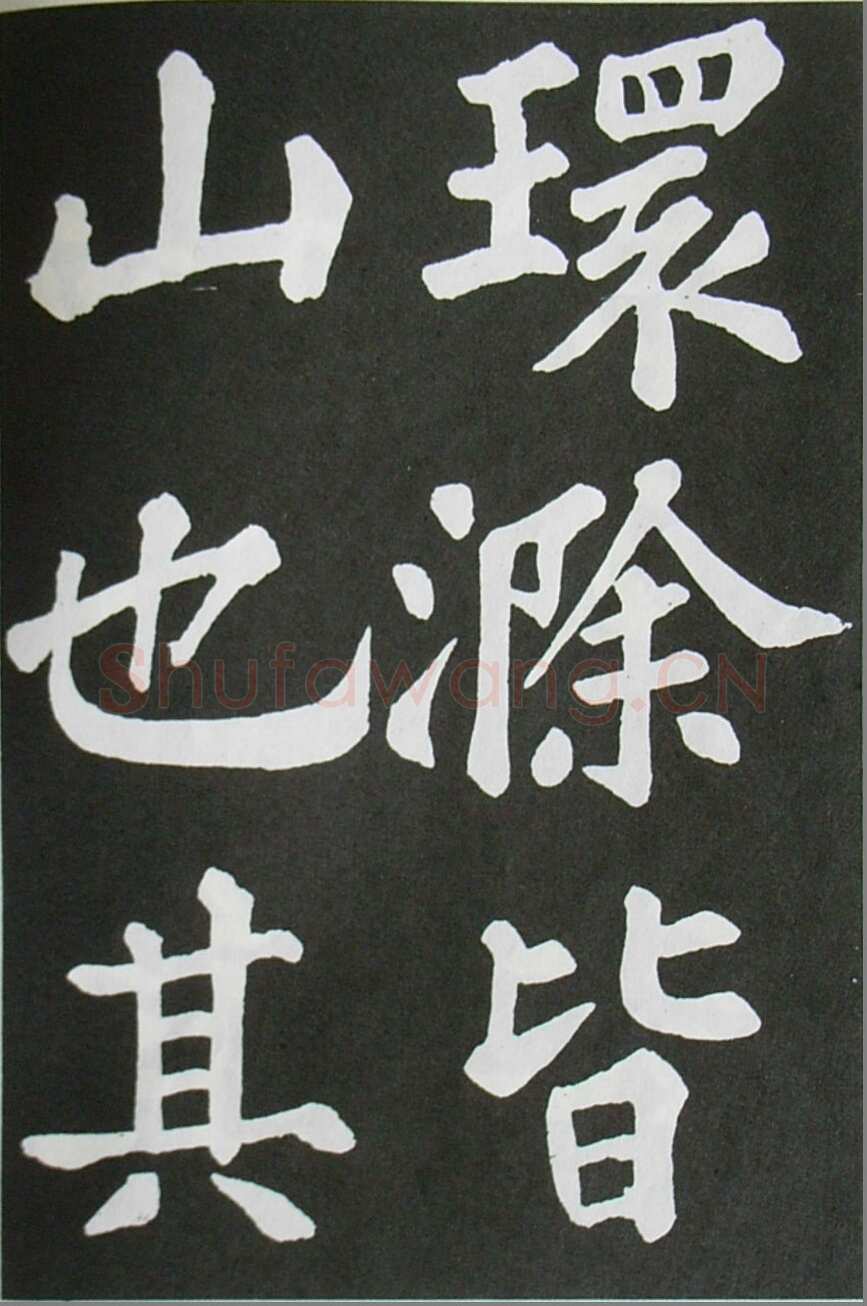 環滁皆
山也其
Shufawang.CN